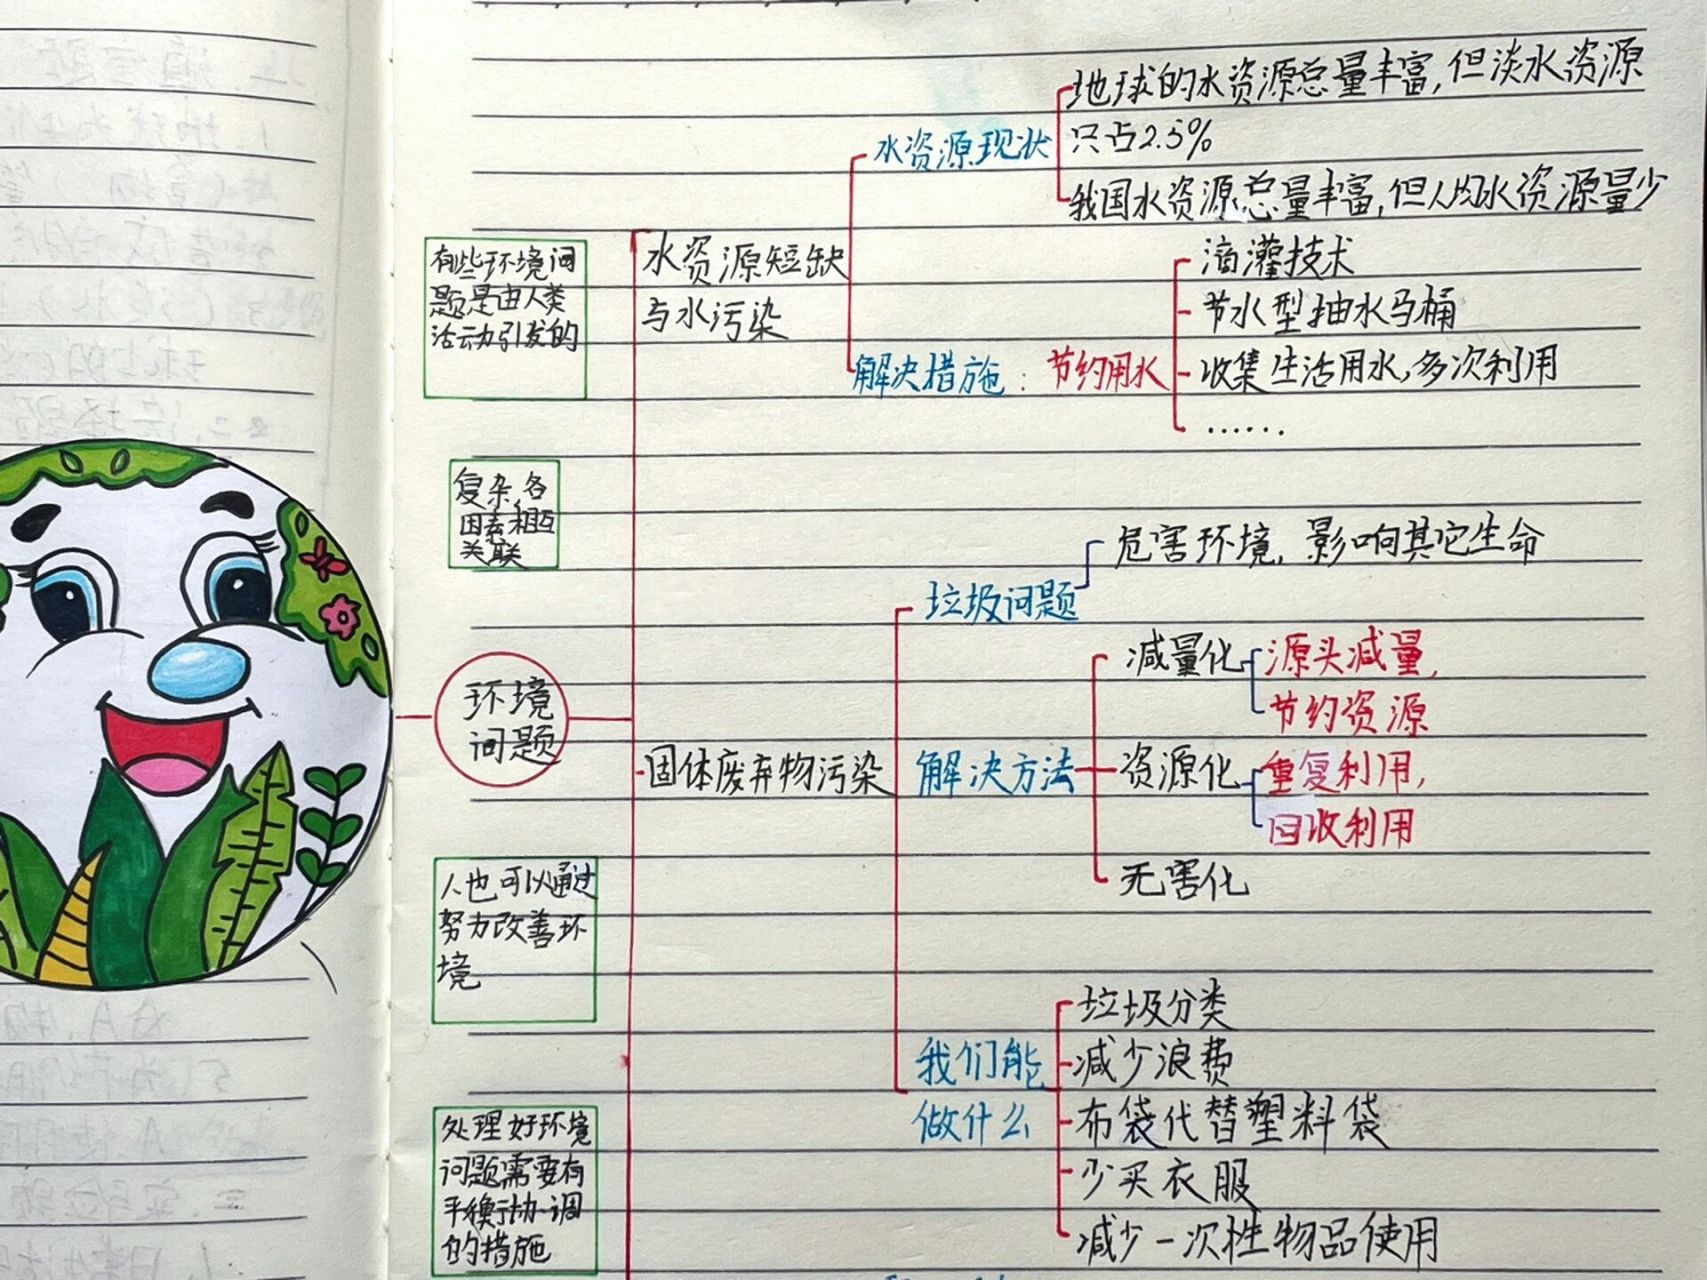 地球的水资源总量丰富,但淡水资源
只占2.5%
水资源现状
我国水资源总量丰富,但人均水资源量少
有些环境问
题是由人类
活动引发的
水资源短缺
与水污染
滴灌技术
节水型抽水马桶
解决措施:节约用水
收集生活用水,多次利用
……
复杂,各
因素相互
关联
危害环境,影响其它生命
垃圾问题
减量化
源头减量,
节约资源
环境
问题
固体废弃物污染
解决方法
资源化
重复利用,
回收利用
无害化
人也可以通过
努力改善环
境
垃圾分类
我们能
做什么
减少浪费
布袋代替塑料袋
少买衣服
减少一次性物品使用
处理好环境
问题需要有
协调
的措施